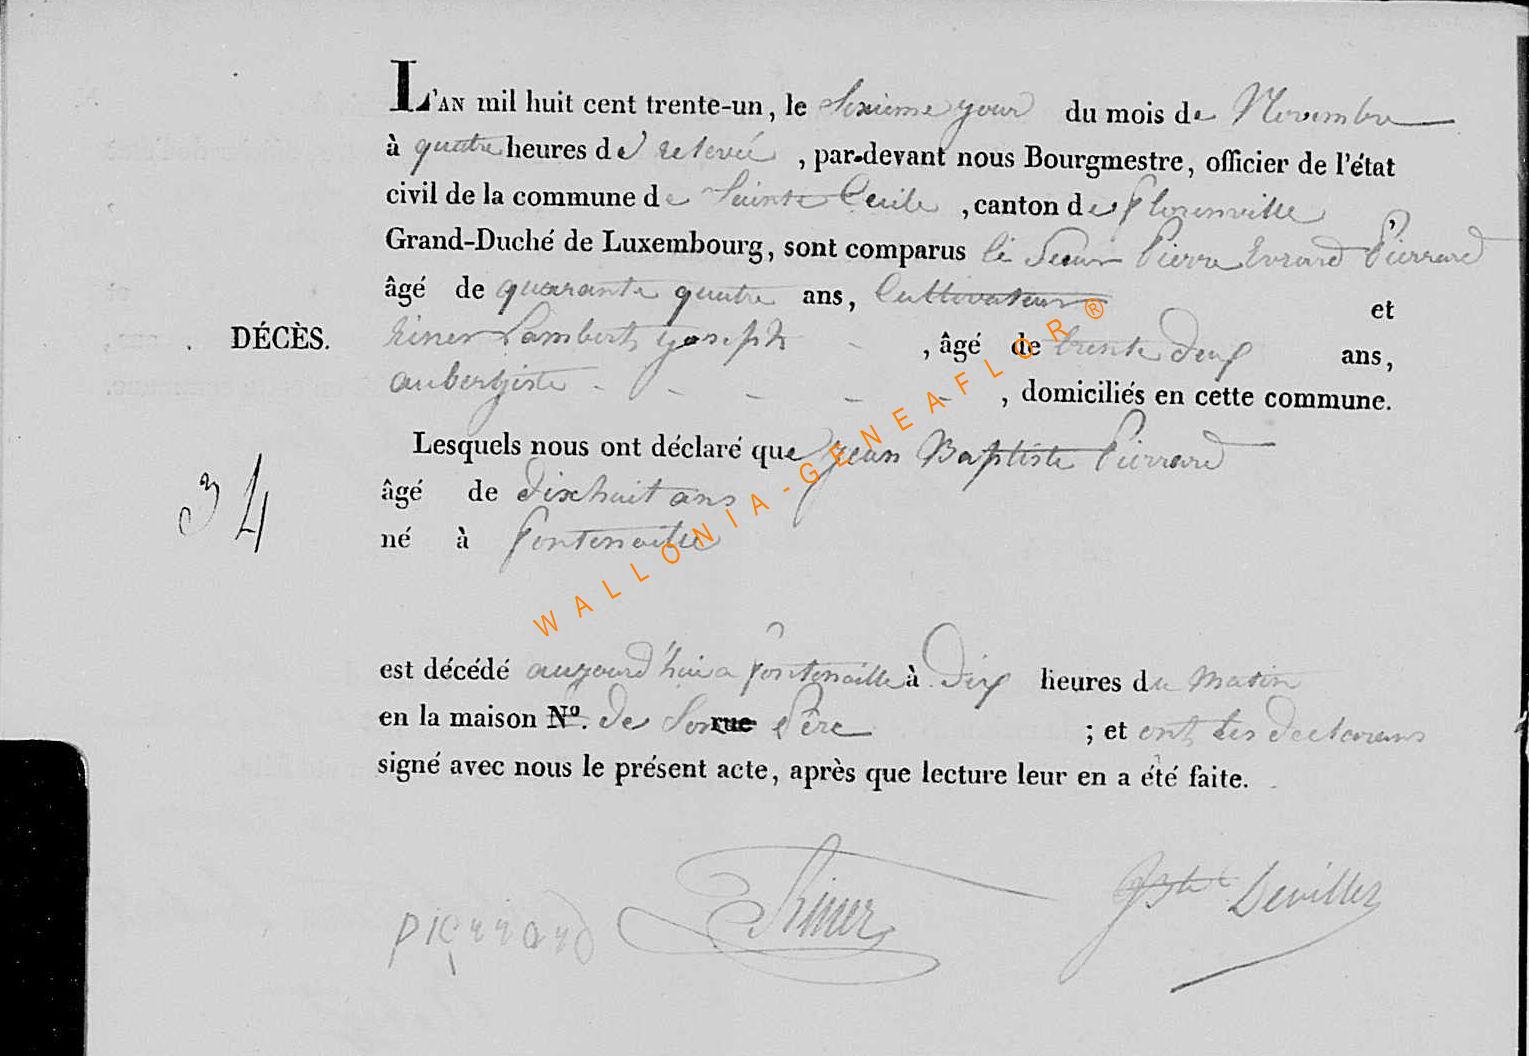 L'AN mil huit cent trente-un, le Sixieme jour du mois de Novembre
à quatre heures de relevée, par-devant nous Bourgmestre, officier de l'état
civil de la commune de Sainte Cecile, canton de florenville,
Grand-Duché de Luxembourg, sont comparus le Sieur Pierre Evrard Pierrard
âgé de quarante quatre ans, Cultivateur et
DÉCÈS. Lambert joseph, âgé de trente deux ans,
aubergiste, domiciliés en cette commune.
Lesquels nous ont déclaré que jean Baptiste Pierrard
34 âgé de dixhuit ans
né à fontenaille
est décédé aujourd'hui a fontenaille à dix heures du matin
en la maison No. de Son rue Père ; et ont les declarans
signé avec nous le présent acte, après que lecture leur en a été faite.
pierrard Devillez
WALLONIA-GENEAFLOR®